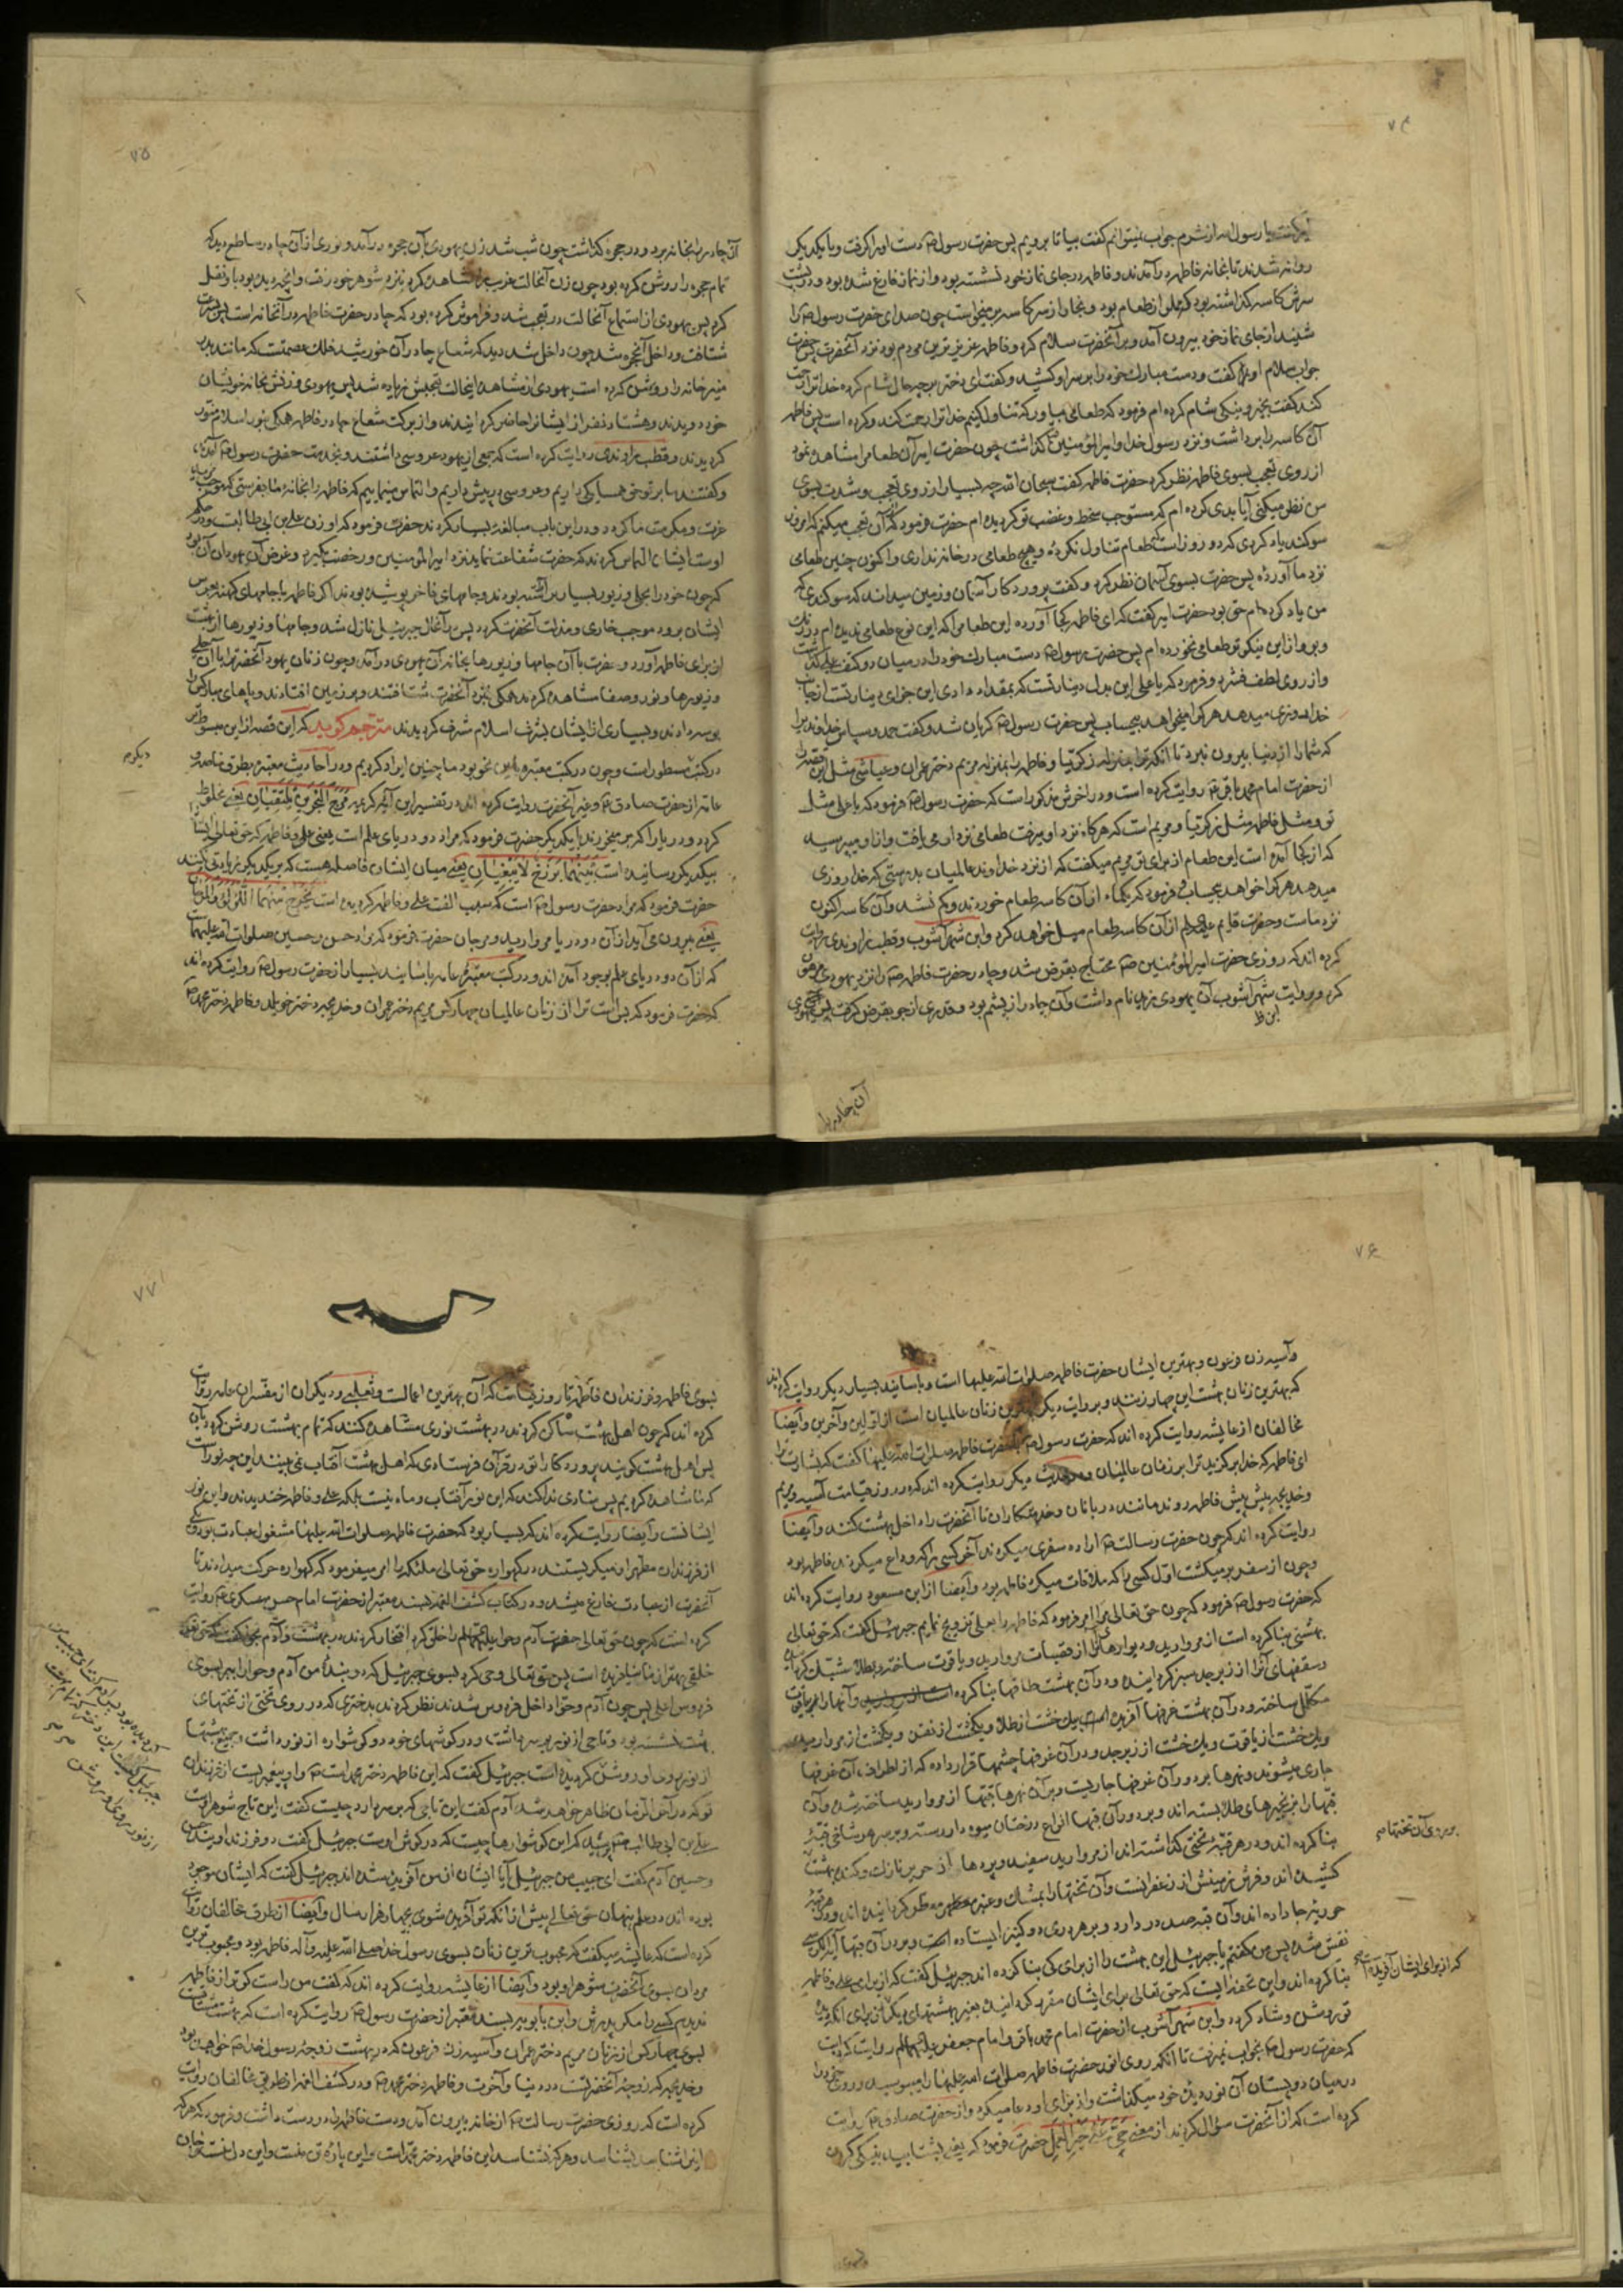 ۷۴
یا رسول الله از شرم جواب نمیتوانم گفت بیا تا برویم پس حضرت رسول ص دست او را گرفت و با یکدیگر
روانه شدند تا بخانه فاطمه درآمدند و فاطمه در جای نماز خود نشسته بود و از نماز فارغ شده بود و در پشت
سرش کاسه گذاشته بود که مملو از طعام بود و بخار از سر کاسه بر میخواست چون صدای حضرت رسول ص را
شنید از جای نماز خود بیرون آمد و بر آنحضرت سلام کرد و فاطمه عزیزترین مردم بود نزد آنحضرت پس حضرت
جواب سلام او گفت و دست مبارک خود را بر سر او کشید و گفت ای دختر بر چه حال شام کرده خدا ترا رحمت
کند گفت بخیر و نیکی شام کرده ام فرمود که طعامی بیاور که تناول کنیم خدا ترا رحمت کند و کرده است پس فاطمه
آن کاسه را برداشت و نزد رسول خدا و امیرالمؤمنین گذاشت چون حضرت امیر آن طعام را مشاهده نمود
از روی تعجب بسوی فاطمه نظر کرد حضرت فاطمه گفت سبحان الله چه بسیار از روی تعجب و شدت بسوی
من نظر میکنی آیا بدی کرده ام که مستوجب سخط و غضب تو گردیده ام حضرت فرمود که آن تعجب میکنم که امروز
سوگند یاد کردی که دو روز است طعام تناول نکرده و هیچ طعامی در خانه نداری و اکنون چنین طعامی
نزد ما آورده پس حضرت بسوی آسمان نظر کرد و گفت پروردگار آسمان و زمین میداند که سوگندی که
من یاد کرده ام حق بود حضرت امیر گفت که ای فاطمه از کجا آورده این طعام را که این نوع طعامی ندیده ام در رنگ
و بو و از این نیکوتر طعامی نخورده ام پس حضرت رسول ص دست مبارک خود را در میان دو کتف علی گذاشت
و از روی لطف فشرد و فرمود که یا علی این بدل دینار تست که بمقداد دادی این جزای دینار تست از جانب
خدا و روزی میدهد هر که را میخواهد بیحساب پس حضرت رسول ص گریان شد و گفت حمد و سپاس خداوندی را
که شما را از دنیا بیرون نبرد تا آنکه ترا بمنزله زکریا و فاطمه را بمنزله مریم دختر عمران و عیاشی مثل این قصه را
از حضرت امام محمد باقر ع روایت کرده است و در آخرش مذکور است که حضرت رسول ص فرمود که یا علی مثل
تو و مثل فاطمه مثل زکریا و مریم است که هرگاه نزد او میرفت طعامی نزد او می یافت و از او میپرسید
که از کجا آمده است این طعام از برای تو مریم میگفت که از نزد خداوند عالمیان بدرستی که خدا روزی
میدهد هر که را خواهد بیحساب و فرمود که یکماه از آن کاسه طعام خوردند و کم نشد و آن کاسه اکنون
نزد ماست و حضرت قایم از آن کاسه طعام میل خواهد کرد و ابن شهرآشوب و قطب راوندی روایت
کرده اند که روزی حضرت امیرالمؤمنین ص محتاج بقرض شد و چادر حضرت فاطمه ص را نزد یهودی مرهون
کرد و بروایت شهرآشوب آن یهودی زید نام داشت و آن چادر از پشم بود و قدری از جو بقرض گرفت پس یهودی
ابن ظ
آن چادر را
۷۵
آن چادر را بخانه برد و در حجره گذاشت چون شب شد زن یهودی بآن حجره درآمد و نوری از آن چادر ساطع دید که
تمام حجره را روشن کرده بود چون زن آنحالت غریب را مشاهده کرد بنزد شوهر خود رفت و آنچه دیده بود باو نقل
کرد پس یهودی از استماع آنحالت در تعجب شد و فراموش کرده بود که چادر حضرت فاطمه در آنخانه است پس بسرعت
شتافت و داخل آنحجره شد چون داخل شد دید که شعاع چادر آن خورشید فلک عصمتست که مانند بدر
منیر خانه را روشن کرده است یهودی از مشاهده اینحالت تعجبش زیاده شد پس یهودی و زنش بخانه خویشان
خود دویدند و هشتاد نفر از ایشانرا حاضر گردانیدند و از برکت شعاع چادر فاطمه همگی بنور اسلام منور
گردیدند و قطب راوندی روایت کرده است که جمعی از یهود عروسی داشتند و بخدمت حضرت رسول ص آمدند
و گفتند ما بر تو حق همسایگی داریم و عروسی در پیش داریم و التماس مینماییم که فاطمه را بخانه ما بفرستی که موجب مزید
عزت و مکرمت ما گردد و در این باب مبالغه بسیار کردند حضرت فرمود که او زن علی بن ابی طالبست و در حکم
اوست ایشان التماس کردند که حضرت شفاعت نماید نزد امیرالمؤمنین و رخصت بگیرد و غرض آن یهودان آن بود
که چون خود را بحلی و زیور بسیار آراسته بودند و جامهای فاخر پوشیده بودند اگر فاطمه با جامهای کهنه بعروسی
ایشان برود موجب خاری و مذلت آنحضرت گردد پس در آنحال جبرئیل نازل شد و جامها و زیورها از بهشت
از برای فاطمه آورد و حضرت با آن جامها و زیورها بخانه آن یهودی درآمد و چون زنان یهود آنحضرت را با آن حلی
و زیورها و نور و صفا مشاهده کردند همگی بنزد آنحضرت شتافتند و بر زمین افتادند و پاهای مبارکش را
بوسه دادند و بسیاری از ایشان بشرف اسلام مشرف گردیدند مترجم گوید که این قصه از این مبسوط تر
در کتب مسطور است و چون در کتب معتبره باین نحو بود ما چنین ایراد کردیم و در احادیث معتبره بطرق خاصه و
عامه از حضرت صادق ع و غیر آنحضرت روایت کرده اند در تفسیر این آیه کریمه مَرَجَ الْبَحْرَيْنِ يَلْتَقِيَانِ یعنی مخلوط
کرد دو دریا را که بر میخورند با یکدیگر حضرت فرمود که مراد دو دریای علم است یعنی علی و فاطمه که حق تعالی ایشانرا
بیکدیگر رسانیده است بَيْنَهُمَا بَرْزَخٌ لَا يَبْغِيَانِ یعنی میان ایشان فاصله هست که بر یکدیگر زیادتی نمیکنند
حضرت فرمود که مراد حضرت رسول ص است که سبب الفت علی و فاطمه گردیده است يَخْرُجُ مِنْهُمَا اللُّؤْلُؤُ وَالْمَرْجَانُ
یعنی بیرون می آید از آن دو دریا مروارید و مرجان حضرت فرمود که مراد حسن و حسین صلوات الله علیهما
که از آن دو دریای علم بوجود آمده اند و در کتب معتبره عامه باسانید بسیار از حضرت رسول ص روایت کرده اند
که حضرت فرمود که بس است ترا از زنان عالمیان چهار کس مریم دختر عمران و خدیجه دختر خویلد و فاطمه دختر محمد ص
دیگر
۷۶
و آسیه زن فرعون و بهترین ایشان حضرت فاطمه صلوات الله علیها است و باسانید بسیار دیگر روایت کرده اند
که بهترین زنان بهشت این چهار زنند و بروایت دیگر بهترین زنان عالمیان است از اولین و آخرین و ایضا
مخالفان از عایشه روایت کرده اند که حضرت رسول ص بحضرت فاطمه صلوات الله علیها گفت که بشارت باد ترا
ای فاطمه که خدا برگزید ترا بر زنان عالمیان و در حدیث دیگر روایت کرده اند که در روز قیامت آسیه و مریم
و خدیجه پیش پیش فاطمه روند مانند دربانان و خدمتکاران تا آنحضرت را داخل بهشت کنند و ایضا
روایت کرده اند که چون حضرت رسالت ص اراده سفری میکردند آخر کسی را که وداع میکردند فاطمه بود
و چون از سفر بر میگشت اول کسی را که ملاقات میکرد فاطمه بود و ایضا از ابن مسعود روایت کرده اند
که حضرت رسول ص فرمود که چون حق تعالی مرا امر فرمود که فاطمه را بعلی تزویج نمایم جبرئیل گفت که حق تعالی
بهشتی بنا کرده است از مروارید و دیوارهای آنرا از قصبات مروارید و یاقوت ساخته و بطلا مشبک گردانیده
و سقفهای آنرا از زبرجد سبز گردانیده و در آن بهشت طاقها بنا کرده و آنها را بیاقوت
مکلل ساخته و در آن بهشت غرفها آفریده است یک خشت از طلا و یکخشت از نقره و یکخشت از مروارید
و یک خشت از یاقوت و یک خشت از زبرجد و در آن غرفها چشمها قرار داده که از اطراف آن غرفها
جاری میشوند و نهرها بر دور آن غرفها جاریست و بر آن نهرها قبها از مروارید ساخته شده و آن
قبها را بزنجیرهای طلا بسته اند و بر دور آن قبها انواع درختان میوه دار رسته و بر سر هر شاخی قبه
بنا کرده اند و در هر قبه تختی گذاشته اند از مروارید سفید و پرده ها از حریر نازک و گنده بهشت
کشیده اند و فرش زمینش از زعفرانست و آن تختها را بمشک و عنبر معطر گردانیده اند و در هر قبه
حوریه جا داده اند و آن قبه صد در دارد و بر هر دری دو کنیز ایستاده است و بر دور آن قبها آیة الکرسی
نقش شده پس من گفتم یا جبرئیل این بهشت را از برای کی بنا کرده اند جبرئیل گفت که از برای علی و فاطمه
بنا کرده اند و این تحفه ایست که حق تعالی برای ایشان مقرر گردانیده بغیر بهشتهای دیگر
تو روشن و شاد گردد و ابن شهرآشوب از حضرت امام محمد باقر و امام جعفر علیهما السلام روایت کرده است
که حضرت رسول ص بخواب نمیرفت تا آنکه روی انور حضرت فاطمه صلوات الله علیها را میبوسید و روی خود را
در میان دو پستان آن نور دیده خود میگذاشت و از برای او دعا میکرد و از حضرت صادق ع روایت
کرده است که از آنحضرت سؤال کردند از معنی حَيَّ عَلَى خَيْرِ الْعَمَلِ حضرت فرمود که یعنی بشتابید به نیکی کردن
بر روی آن تختها ص
که از برای ایشان آفریده
۷۷
بسوی فاطمه و فرزندان فاطمه تا روز قیامت که آن بهترین اعمالست و ثعلبی و دیگران از مفسران عامه روایت
کرده اند که چون اهل بهشت ساکن گردند در بهشت نوری مشاهده کنند که تمام بهشت روشن گردد بآن
پس اهل بهشت گویند پروردگارا تو در قرآن فرستادی که اهل بهشت آفتاب نمی بینند این چه نور است
که ما مشاهده کردیم پس منادی ندا کند که این نور آفتاب و ماه نیست بلکه علی و فاطمه خندیدند و این نور
ایشانست و ایضا روایت کرده اند که بسیار بود که حضرت فاطمه صلوات الله علیها مشغول عبادت بود و یکی
از فرزندان مطهر او میگریستند در گهواره حق تعالی ملکی را امر میفرمود که گهواره حرکت میدادند تا
آنحضرت از عبادت فارغ میشد و در کتاب کشف الغمه بسند معتبر از حضرت امام حسن عسکری ع روایت
کرده است که چون حق تعالی حضرت آدم و حوا را خلق کرد افتخار کردند در بهشت و آدم بحوا گفت که حق تعالی
خلقی بهتر از ما نیافریده است پس حق تعالی وحی کرد بسوی جبرئیل که دو بنده من آدم و حوا را ببر بسوی
فردوس اعلی پس چون آدم و حوا داخل فردوس شدند نظر کردند بدختری که در روی تختی از تختهای
بهشت نشسته بود و تاجی از نور بر سر داشت و در گوشهای خود دو گوشواره از نور داشت و جمیع بهشتها
از نور روی او روشن گردیده است جبرئیل گفت که این فاطمه دختر محمد است ص و او پیغمبریست از فرزندان
تو که در آخر الزمان ظاهر خواهد شد آدم گفت این تاجی که بر سر دارد چیست گفت این تاج شوهر اوست
علی بن ابی طالب پرسید که این گوشوارها چیست که در گوش اوست جبرئیل گفت دو فرزند اویند حسن
و حسین آدم گفت ای حبیب من جبرئیل آیا ایشان از من آفریده شده اند جبرئیل گفت که ایشان موجود
بوده اند در علم پنهان حق تعالی پیش از آنکه تو آفریده شوی بچهار هزار سال و ایضا از طرق مخالفان روایت
کرده است که عایشه میگفت که محبوب ترین زنان بسوی رسول خدا صلی الله علیه و آله فاطمه بود و محبوب ترین
مردان بسوی آنحضرت شوهر او بود و ایضا از عایشه روایت کرده اند که گفت من راست گوتر از فاطمه
ندیدم کسی را مگر پدرش و ابن بابویه بسند معتبر از حضرت رسول ص روایت کرده است که بهشت مشتاقست
بسوی چهار کس از زنان مریم دختر عمران و آسیه زن فرعون که در بهشت زوجه رسول خدا ص خواهد بود
و خدیجه که زوجه آنحضرتست در دنیا و آخرت و فاطمه دختر محمد ص و در کشف الغمه از طرق مخالفان روایت
کرده است که روزی حضرت رسالت ص از خانه بیرون آمد و دست فاطمه را در دست داشت و فرمود که هر که
این را شناسد شناسد و هر که نشناسد این فاطمه دختر محمد است و این پاره تن منست و این دل منست و جان